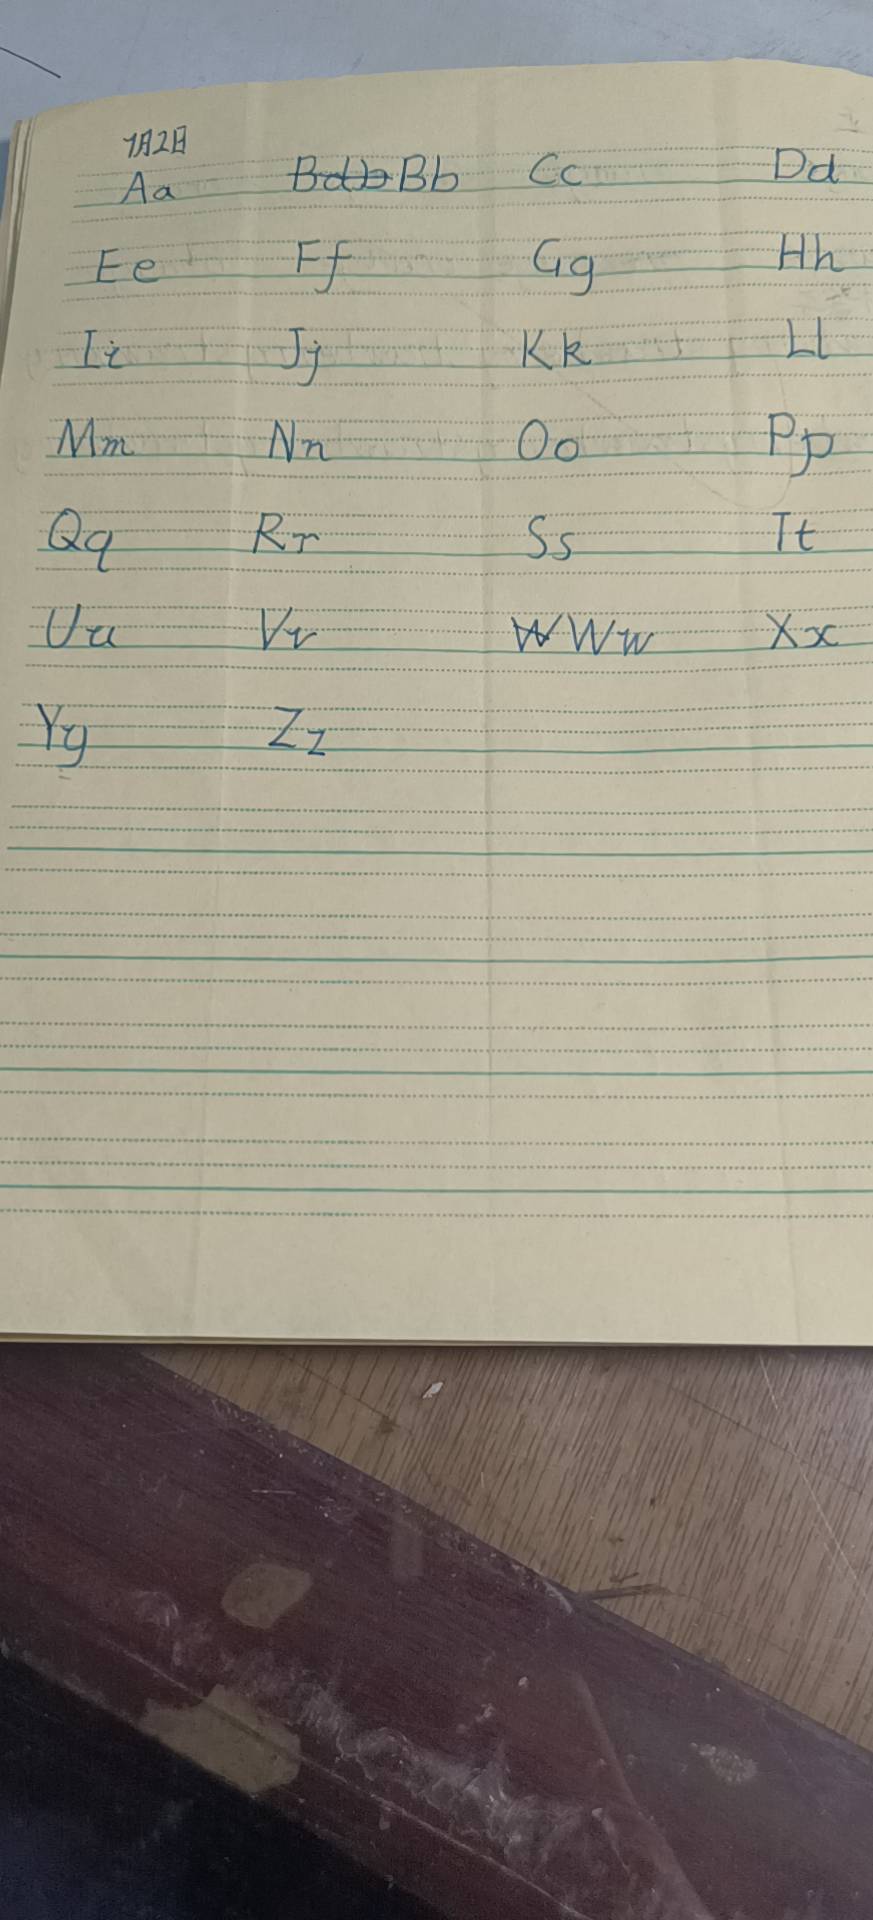 7月2日
Aa Bb Cc Dd
Ee Ff Gg Hh
Ii Jj Kk Ll
Mm Nn Oo Pp
Qq Rr Ss Tt
Uu Vv Ww Xx
Yy Zz